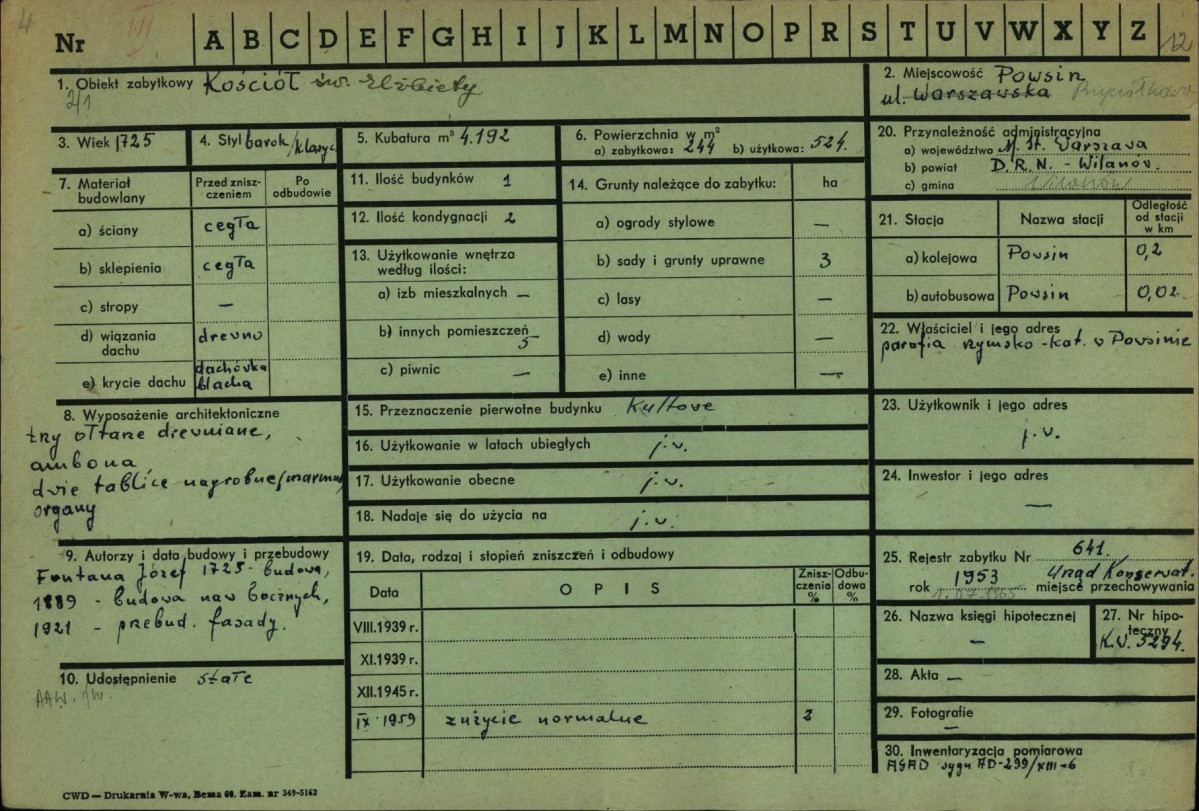 4
Nr I/II A B C D E F G H I J K L M N O P R S T U V W X Y Z 12
1. Obiekt zabytkowy Kościół św. Elżbiety
2. Miejscowość Powsin
ul. Warszawska
3. Wiek 1725
4. Styl barok/klasyc
5. Kubatura m³ 4.192
6. Powierzchnia w m²
a) zabytkowa: 244 b) użytkowa: 524.
20. Przynależność administracyjna
a) województwo M. St. Warszawa
b) powiat D.R.N. - Wilanów.
c) gmina Wilanów
7. Materiał budowlany
Przed znisz-
czeniem
Po
odbudowie
a) ściany cegła
b) sklepienia cegła
c) stropy —
d) wiązania
dachu drewno
e) krycie dachu dachówka
blacha
11. Ilość budynków 1
12. Ilość kondygnacji 2
13. Użytkowanie wnętrza
według ilości:
a) izb mieszkalnych —
b) innych pomieszczeń
5
c) piwnic —
14. Grunty należące do zabytku: ha
a) ogrody stylowe —
b) sady i grunty uprawne 3
c) lasy —
d) wody —
e) inne —
21. Stacja Nazwa stacji Odległość
od stacji
w km
a) kolejowa Powsin 0,2
b) autobusowa Powsin 0,02
22. Właściciel i jego adres
parafia rzymsko-kat. w Powsinie
8. Wyposażenie architektoniczne
trzy ołtarze drewniane,
ambona
dwie tablice nagrobne/marmur
organy
15. Przeznaczenie pierwotne budynku Kultowe
16. Użytkowanie w latach ubiegłych j.w.
17. Użytkowanie obecne j.w.
18. Nadaje się do użycia na j.w.
23. Użytkownik i jego adres
j.w.
24. Inwestor i jego adres
—
9. Autorzy i data budowy i przebudowy
Fontana Józef 1725 - budowa,
1889 - budowa naw bocznych,
1921 - przebud. fasady.
10. Udostępnienie stałe
19. Data, rodzaj i stopień zniszczeń i odbudowy
Data OPIS Znisz-
czenia
% Odbu-
dowa
%
VIII.1939 r.
XI.1939 r.
XII.1945 r.
IX 1959 zużycie normalne 2
25. Rejestr zabytku Nr 641.
rok 1953 Urząd Konserwat.
miejsce przechowywania
26. Nazwa księgi hipotecznej
—
27. Nr hipo-
teczny
K.W. 5294.
28. Akta —
29. Fotografie
—
30. Inwentaryzacja pomiarowa
AGAD sygn AD-299/XIII-6
CWD — Drukarnia W-wa, Bema 60. Zam. nr 349-5162